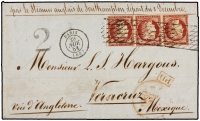 par le Steamer anglais de Southampton départ du 2 Décembre
2
PARIS
Monsieur L. S. Hargous
Veracruz
voie d'Angleterre
Mexique